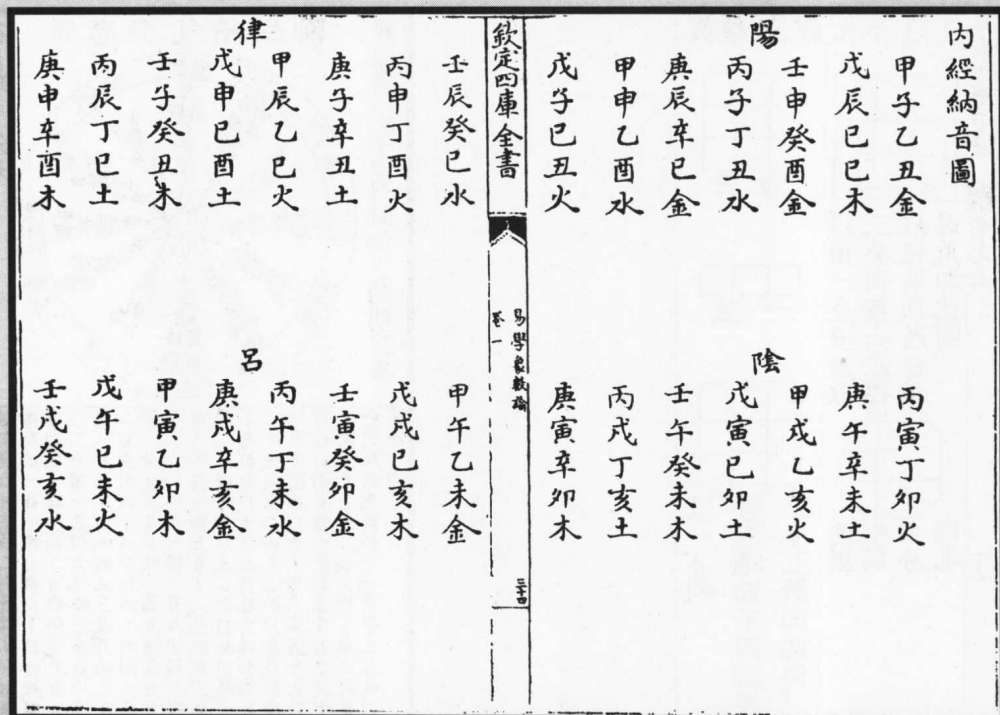 内經納音圖
陽
甲子乙丑金
戊辰己巳木
壬申癸酉金
丙子丁丑水
庚辰辛巳金
甲申乙酉水
戊子己丑火
陰
丙寅丁卯火
庚午辛未土
甲戌乙亥火
戊寅己卯土
壬午癸未木
丙戌丁亥土
庚寅辛卯木
欽定四庫全書
易學象數論
卷一
三十四
律
壬辰癸巳水
丙申丁酉火
庚子辛丑土
甲辰乙巳火
戊申己酉土
壬子癸丑木
丙辰丁巳土
庚申辛酉木
呂
甲午乙未金
戊戌己亥木
壬寅癸卯金
丙午丁未水
庚戌辛亥金
甲寅乙卯木
戊午己未火
壬戌癸亥水